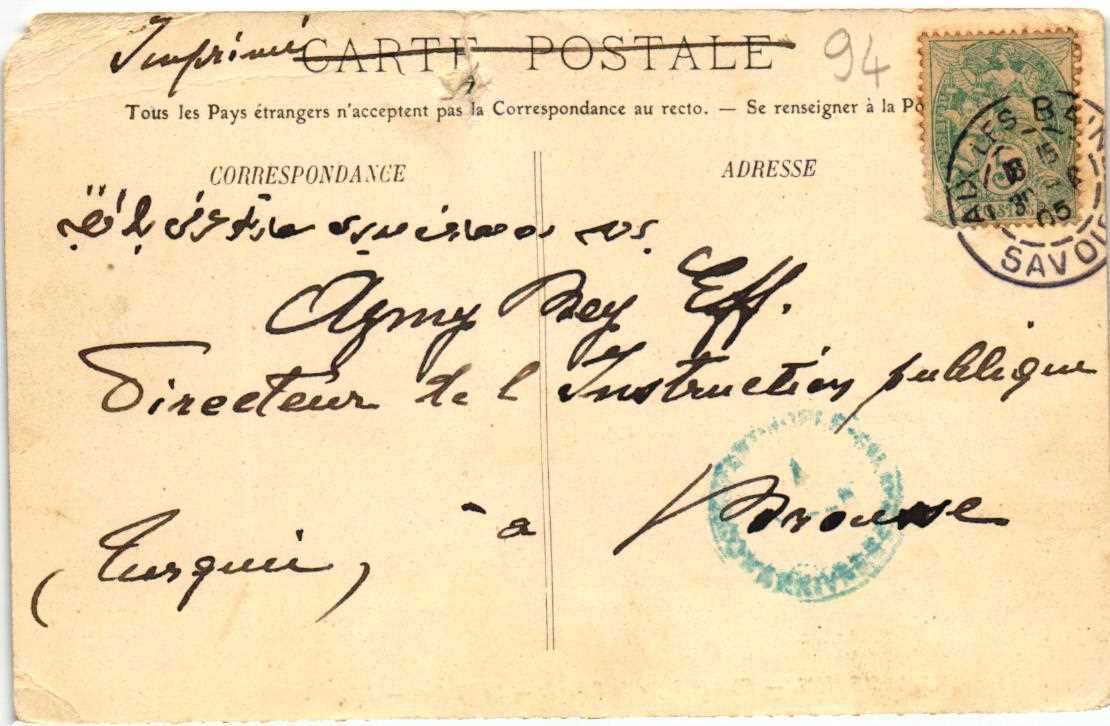 Imprimé CARTE POSTALE 94
Tous les Pays étrangers n'acceptent pas la Correspondance au recto. — Se renseigner à la Po
CORRESPONDANCE
ADRESSE
AIX LES BAINS
15
05
SAVOIE
5
Azmy Bey Eff.
Directeur de l'Instruction publique
à Brousse
(Turquie)